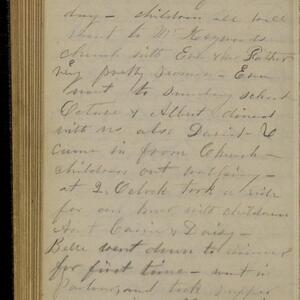 day - children all well
went to Mr
church with
very pretty sermon -
went to Sunday school
Octave & Albert dined
with us also Daniel -
came in from Church -
children out walking -
at 2. Oclock took a ride
for one hour with children
Aunt Carrie & Daisy -
Belle went down to dinner
for first time - went in
Parlour, and took supper